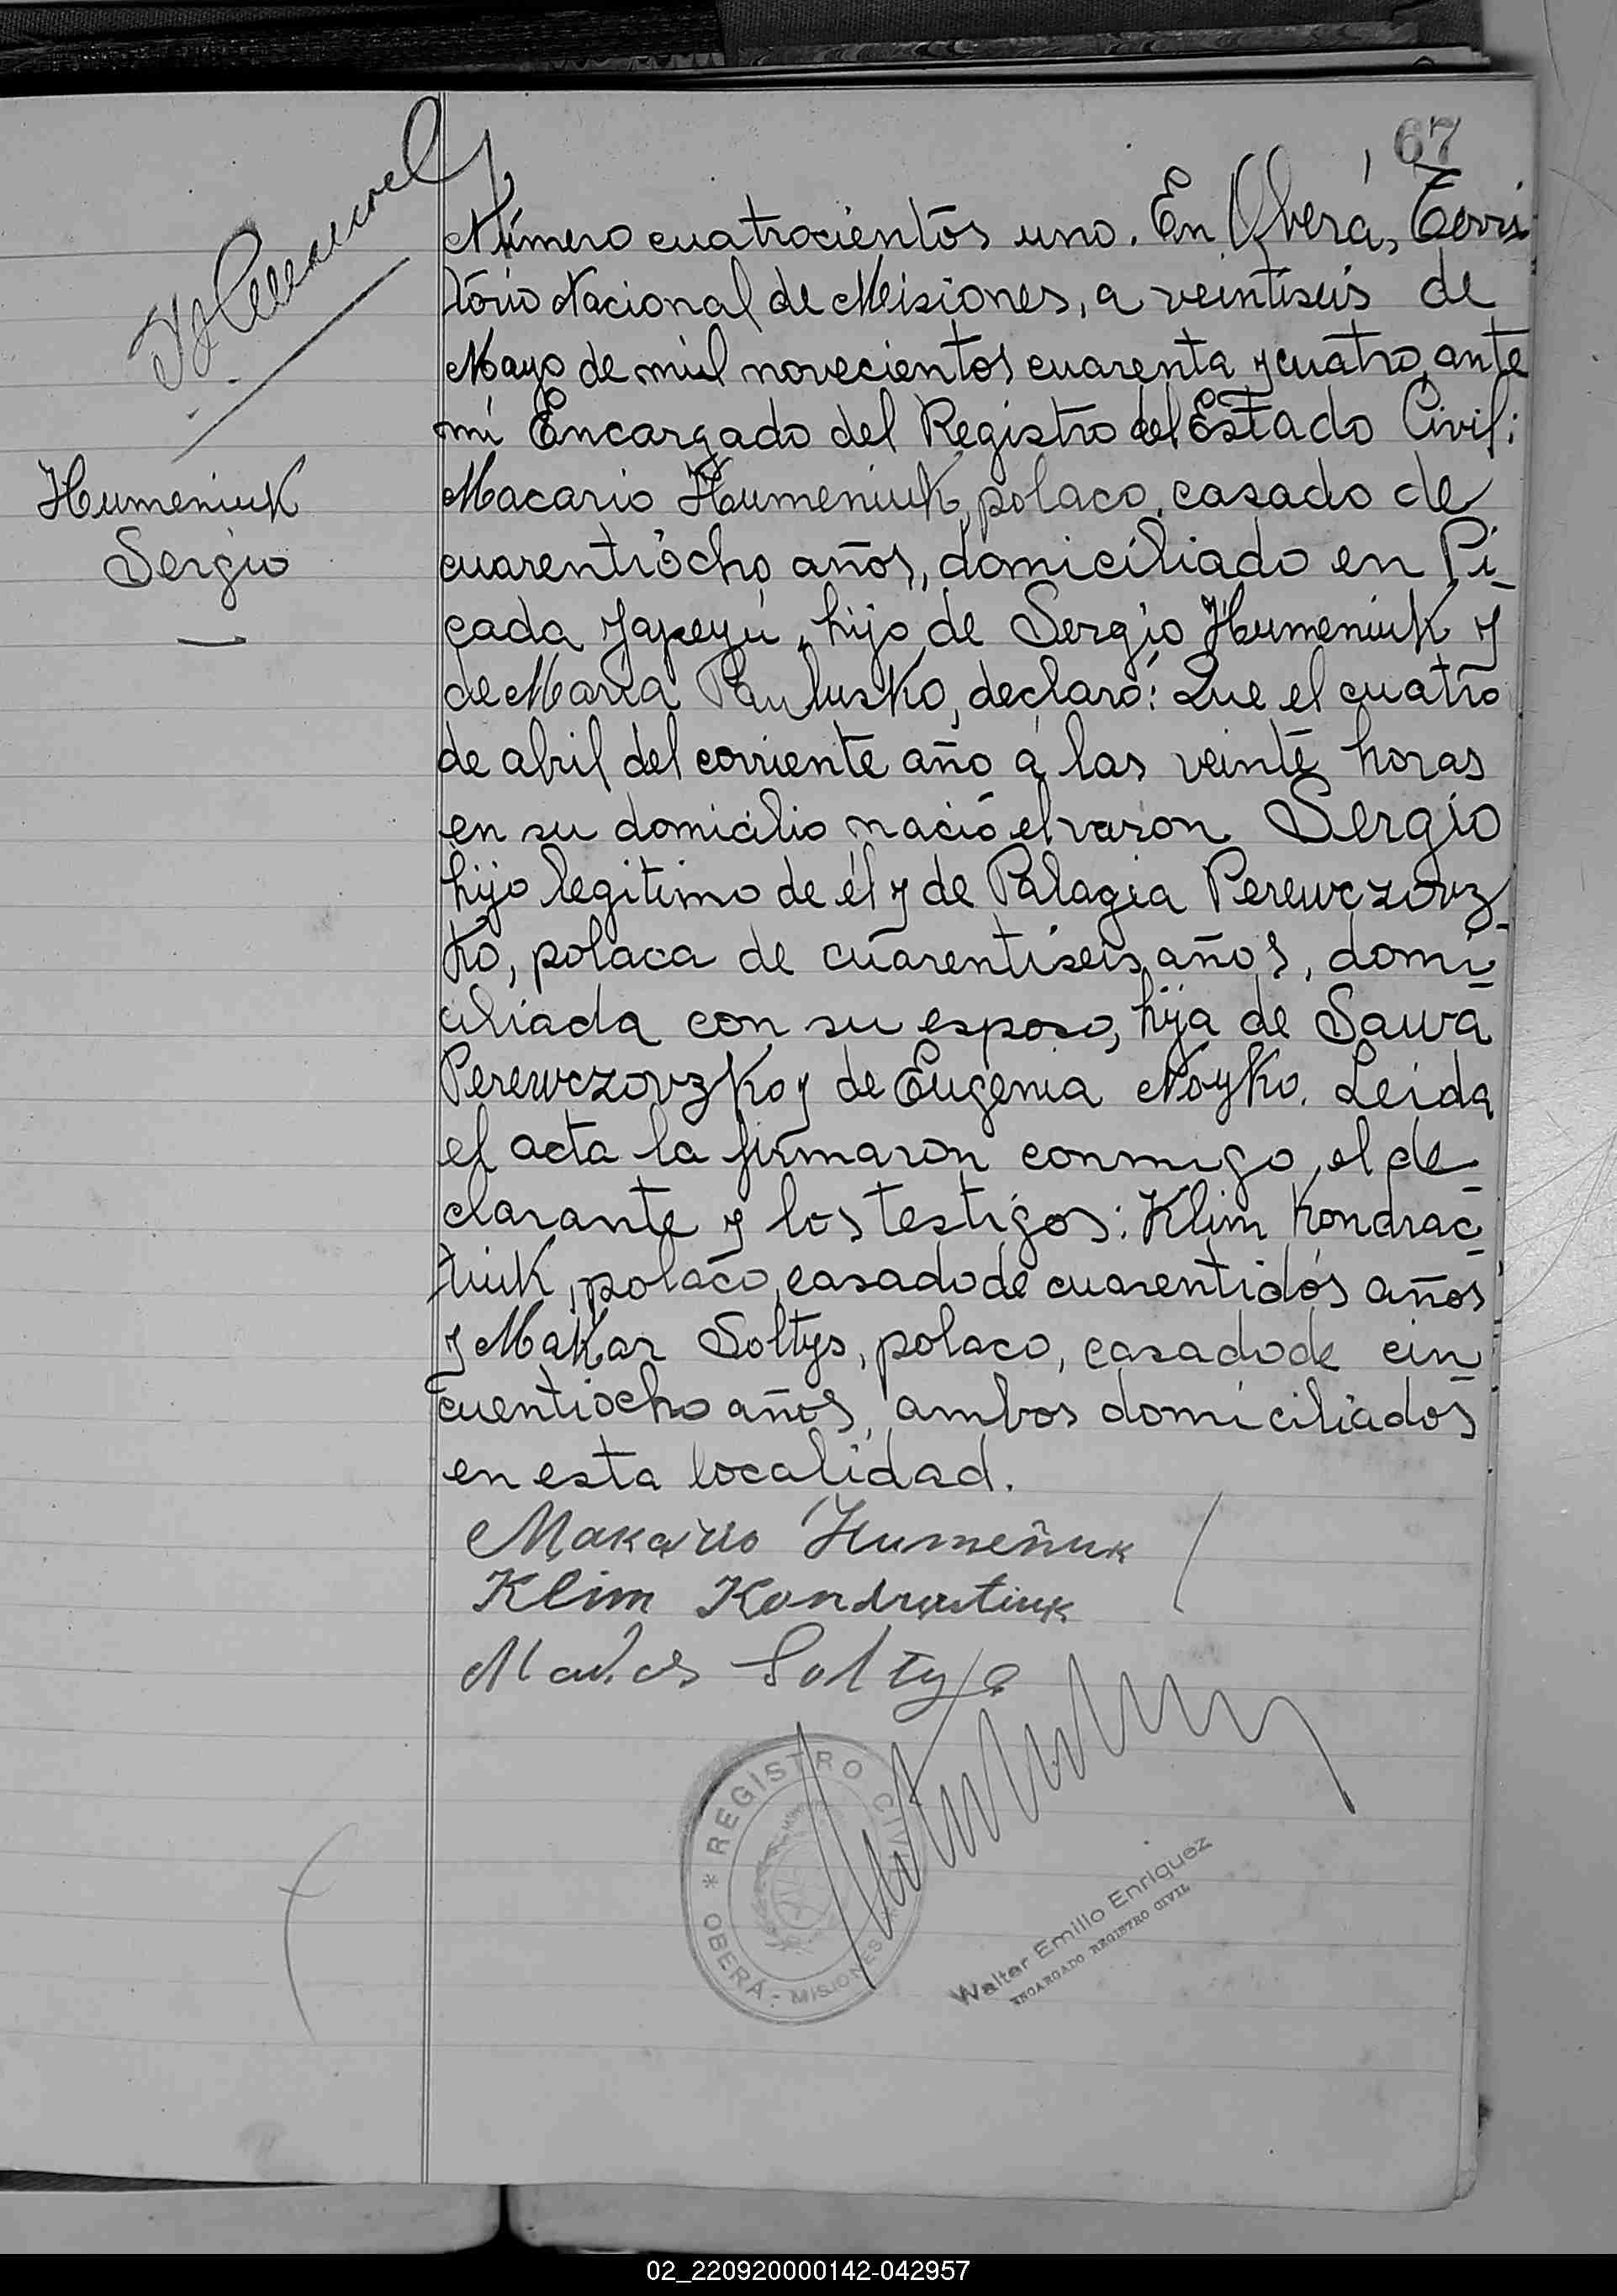 67
Número cuatrocientos uno. En Oberá, Terri
torio Nacional de Misiones, a veintiseis de
Mayo de mil novecientos cuarenta y cuatro, ante
mi Encargado del Registro del Estado Civil:
Humeniuk
Sergio
Macario Humeniuk, polaco, casado de
cuarentiocho años, domiciliado en Pi-
cada Yapeyú, hijo de Sergio Humeniuk y
de María Paulusko, declaró: Que el cuatro
de abril del corriente año a las veinte horas
en su domicilio nació el varon Sergio
hijo legitimo de él y de Palagia Perewczovz-
ko, polaca de cuarentiseis años, domi-
ciliada con su esposo, hija de Sawa
Perewczovzko y de Eugenia Noyko. Leida
el acta la firmaron conmigo, el de-
clarante y los testigos: Klim Kondrac-
tiuk, polaco, casado de cuarentidós años
y Makar Soltys, polaco, casado de cin-
cuentiocho años, ambos domiciliados
en esta localidad.
Makario Humeñuk
Klim Kondratiuk
Soltys
REGISTRO CIVIL
* OBERÁ - MISIONES
Walter Emilio Enriquez
ENCARGADO REGISTRO CIVIL
02_220920000142-042957